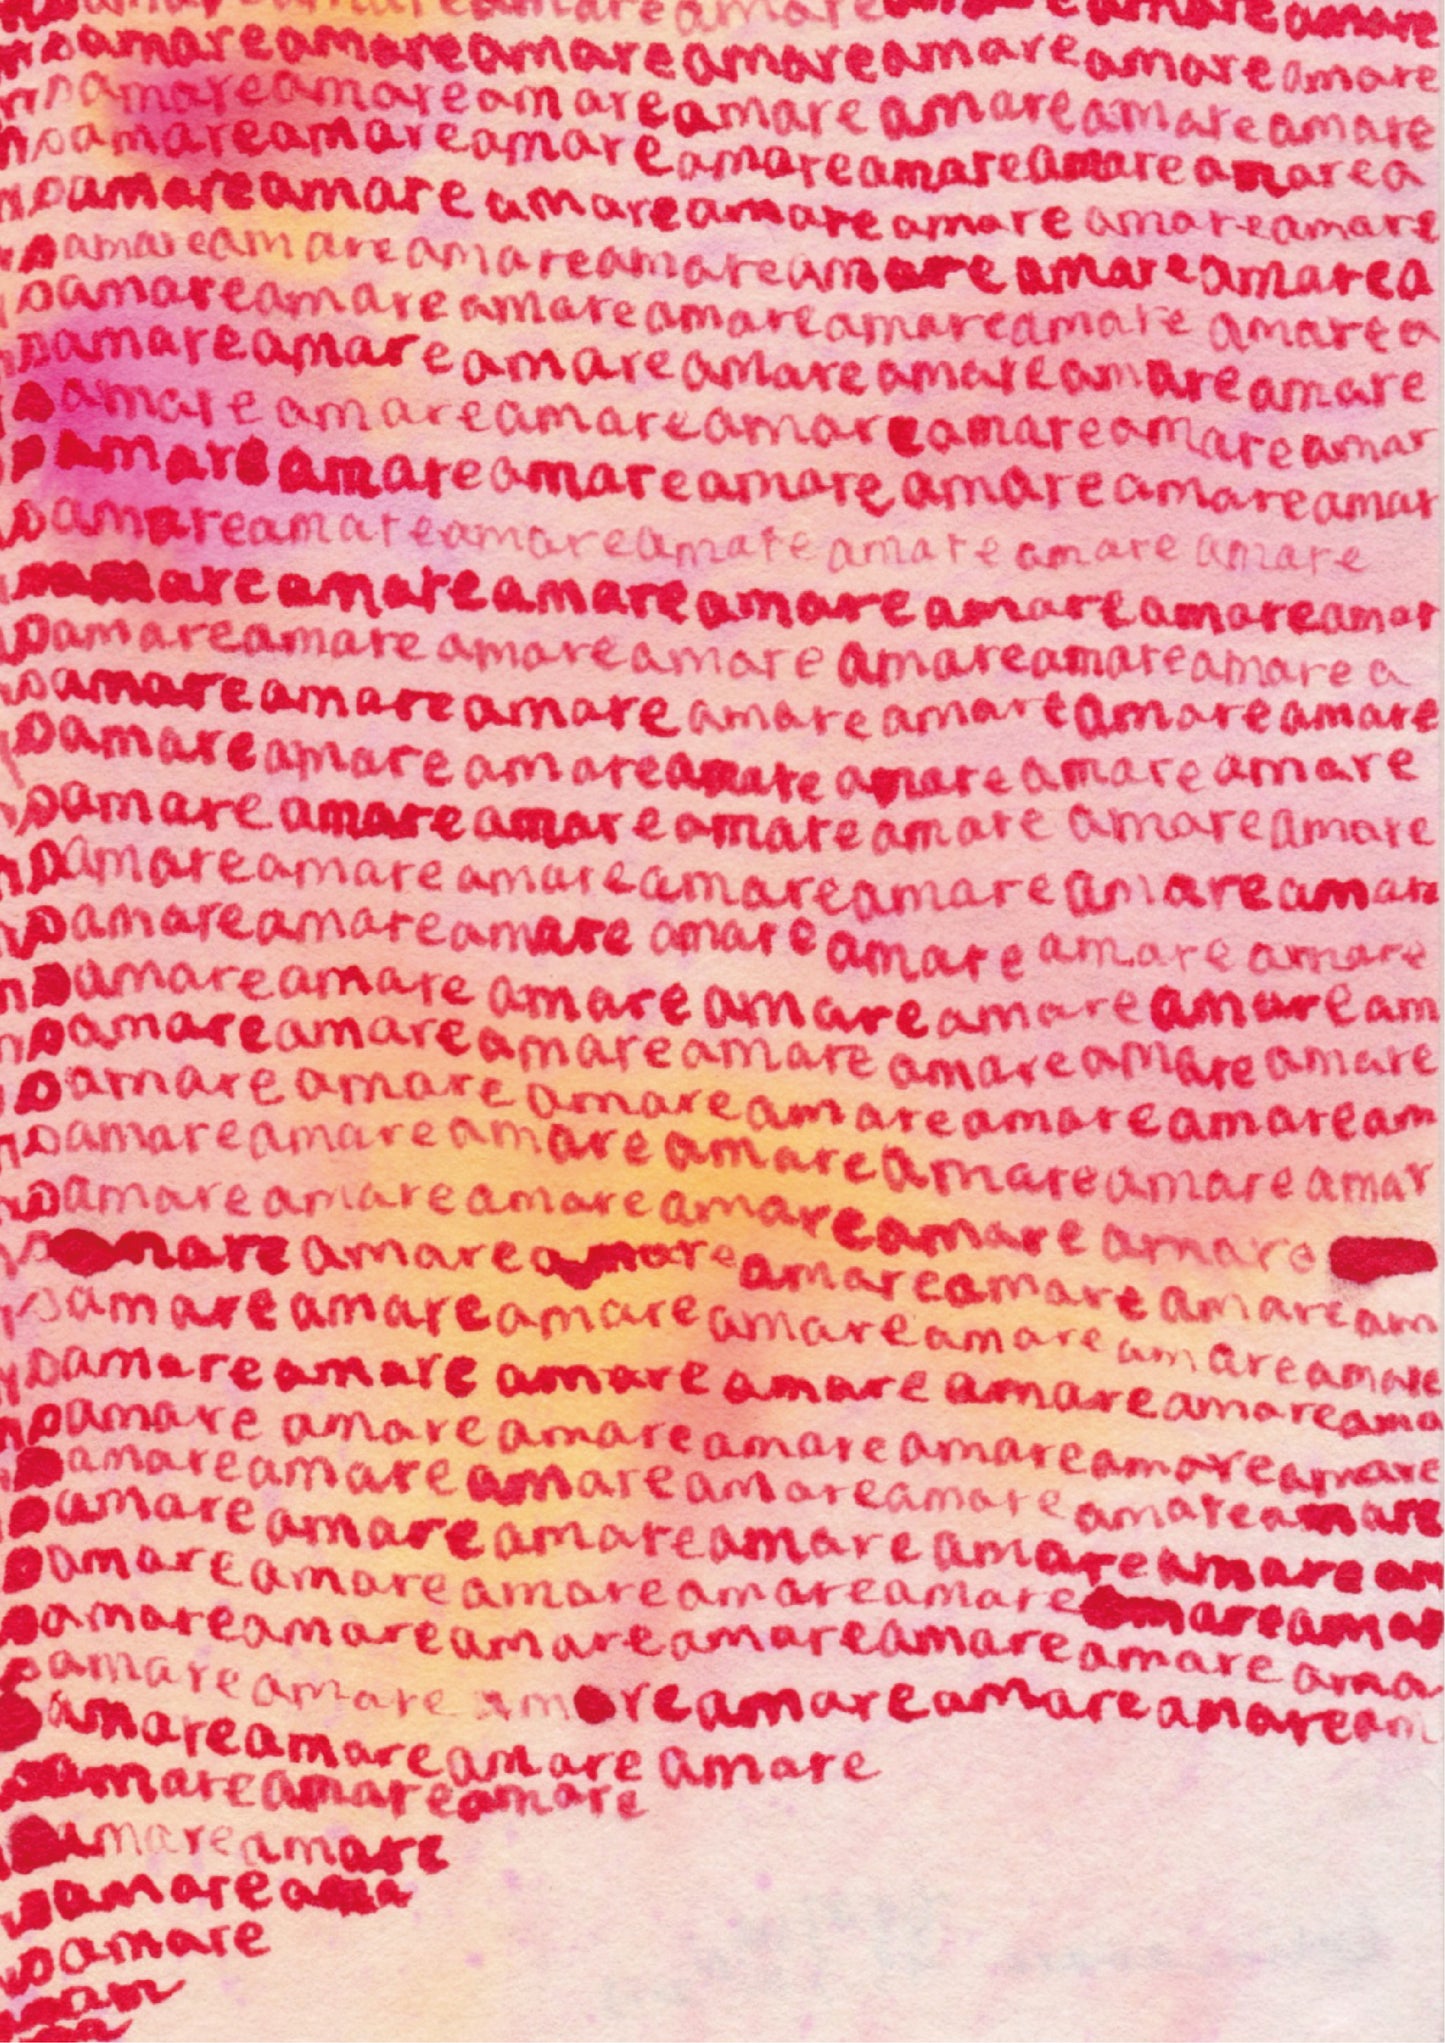 amareamareamare amareamare
amareamareamareamareamare amareamare
amareamareamareamare amareamareamare
amareamareamareamareamareamareamarea
amareamare amareamareamare amareamare
amareamareamareamareamare amareamarea
amareamare amareamareamareamare amarea
amareamare amareamareamareamareamare
amare amareamareamareamareamareamar
amareamareamareamareamareamareamar
amareamareamareamare amare amare amare
amare amareamareamare amareamareamar
amareamare amareamare amareamareamare a
amareamareamare amareamareamareamare
amareamare amareamare amareamareamare
amare amareamareamareamare amareamare
amareamare amareamareamareamareamare
amareamareamare amare amare amareamare
amareamare amare amareamareamaream
amareamareamareamare amareamareamare
amare amare amareamareamareamaream
amareamareamareamareamareamareamar
amareamareamareamareamare amare
amare amareamareamareamare amaream
amareamareamareamareamareamareamare
amareamare amareamare amareamareama
amare amareamareamareamareamareamare
amareamareamareamareamareamareamare
amareamareamareamare amareamaream
amareamareamareamareamareamareamar
amareamareamareamareamareamareama
amareamareamareamareamareamaream
amareamareamare amare
amareamareamare
amareamare
amareama
amare
am